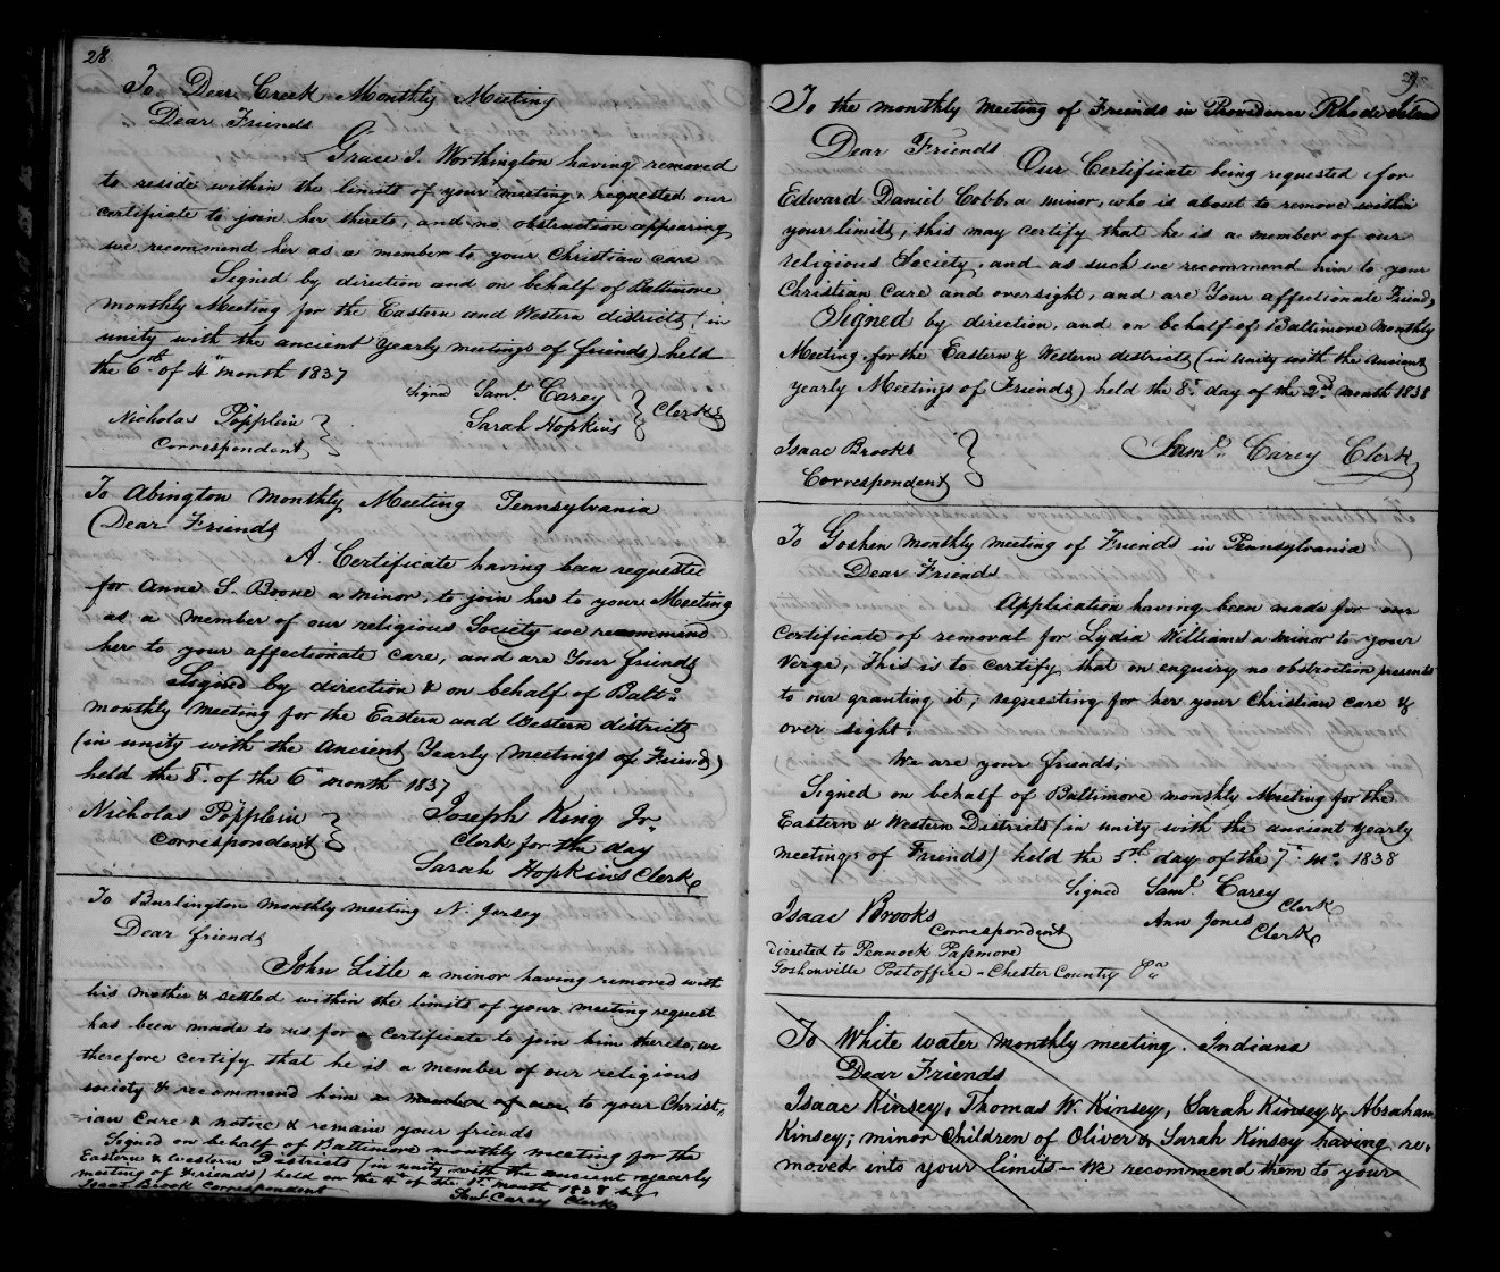 28
To Deer Creek Monthly Meeting
Dear Friends
Grace I. Worthington having removed
to reside within the limits of your meeting, requested our
certificate to join her thereto, and no obstruction appearing
we recommend her as a member to your Christian care
Signed by direction and on behalf of Baltimore
monthly Meeting for the Eastern and Western districts (in
unity with the ancient yearly meetings of friends) held
the 6th of 4th month 1837
Signed Saml. Carey
Sarah Hopkins } Clerks
Nicholas Pöpplein }
Correspondent
To Abington Monthly Meeting Pennsylvania
Dear Friends
A Certificate having been requested
for Anne S. Boone a minor, to join her to your Meeting
as a member of our religious Society we recommend
her to your affectionate care, and are Your friends
Signed by direction & on behalf of Balto.
monthly meeting for the Eastern and Western districts
(in unity with the Ancient Yearly Meetings of Friends)
held the 8th. of the 6th month 1837
Nicholas Pöpplein } Joseph King Jr.
Correspondent Clerk for the day
Sarah Hopkins Clerk
To Burlington monthly meeting N. Jersey
Dear friends
John Litle a minor having removed with
his mother & settled within the limits of your meeting request
has been made to us for a certificate to join him thereto, we
therefore certify that he is a member of our religious
society & recommend him a member of our to your Christ,
=ian Care & notice & remain your friends
Signed on behalf of Baltimore monthly meeting for the
Eastern & Western Districts (in unity with the ancient yearly
meeting of friends) held on the 4th of the 1st month 1838 by
Isaac Brook Correspondent Saml Carey Clerk
29
To the monthly Meeting of Friends in Providence Rhode Island
Dear Friends
Our Certificate being requested for
Edward Daniel Cobb, a minor, who is about to remove within
your limits, this may certify that he is a member of our
religious Society, and as such we recommend him to your
Christian Care and oversight, and are Your affectionate Friends
Signed by direction, and on behalf of Baltimore Monthly
Meeting for the Eastern & Western districts (in unity with the Ancient
yearly Meetings of Friends) held the 8th. day of the 2nd. month 1838
Isaac Brooks } Saml. Carey Clerk
Correspondent
To Goshen monthly meeting of Friends in Pennsylvania
Dear Friends
Application having been made for our
Certificate of removal for Lydia Williams a minor to your
Verge, This is to certify that on enquiry no obstruction presents
to our granting it, requesting for her your Christian care &
over sight.
We are your friends,
Signed on behalf of Baltimore monthly Meeting for the
Eastern & Western Districts (in unity with the ancient yearly
meetings of Friends) held the 5th day of the 7th. mo. 1838
Signed Saml. Carey Clerk
Isaac Brooks Ann Jones Clerk
Correspondent
directed to Pennock Passmore
Goshenville Postoffice - Chester County Pa
To White water monthly meeting. Indiana
Dear Friends
Isaac Kinsey, Thomas W. Kinsey, Sarah Kinsey & Abraham
Kinsey; minor Children of Oliver & Sarah Kinsey having re-
moved into your limits - We recommend them to your